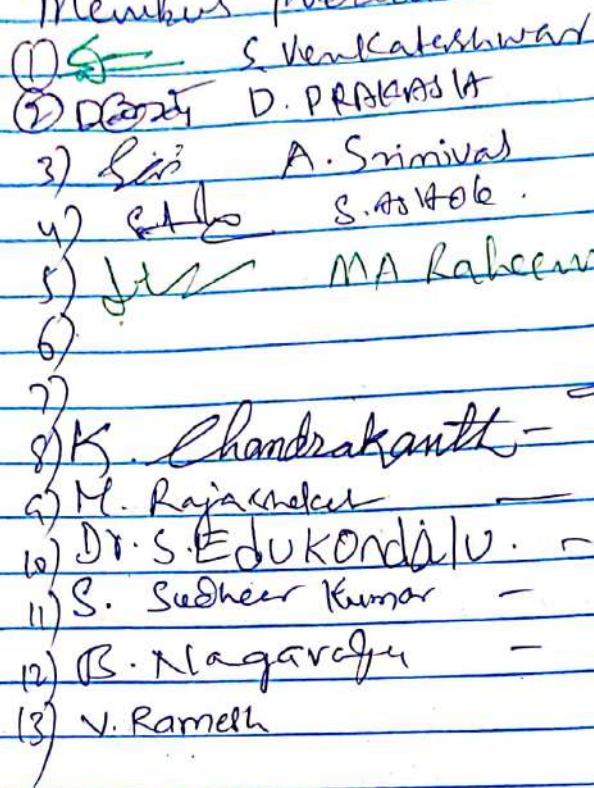 Members
(1) S. Venkateshwar
(2) D. PRAKASH
3) A. Srinivas
4) S. Ashok.
5) MA Raheem
6)
7)
8) K. Chandrakanth -
9) M. Rajashekar —
10) Dr. S. Edukondalu. -
11) S. Sudheer Kumar -
12) B. Nagaraju -
13) V. Ramesh